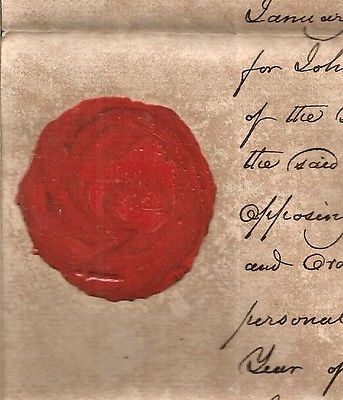 January
for Joh
of the
the said
opposing
and Ord
personal
Year of